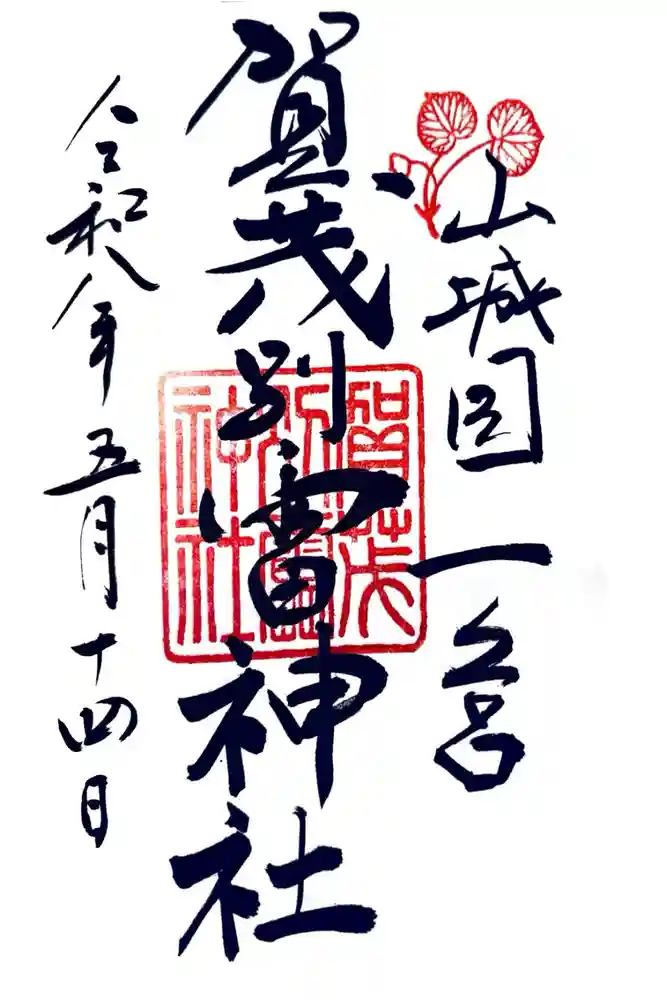 山城国一之宮
賀茂別雷神社
賀茂
別雷
神社
令和八年五月十四日